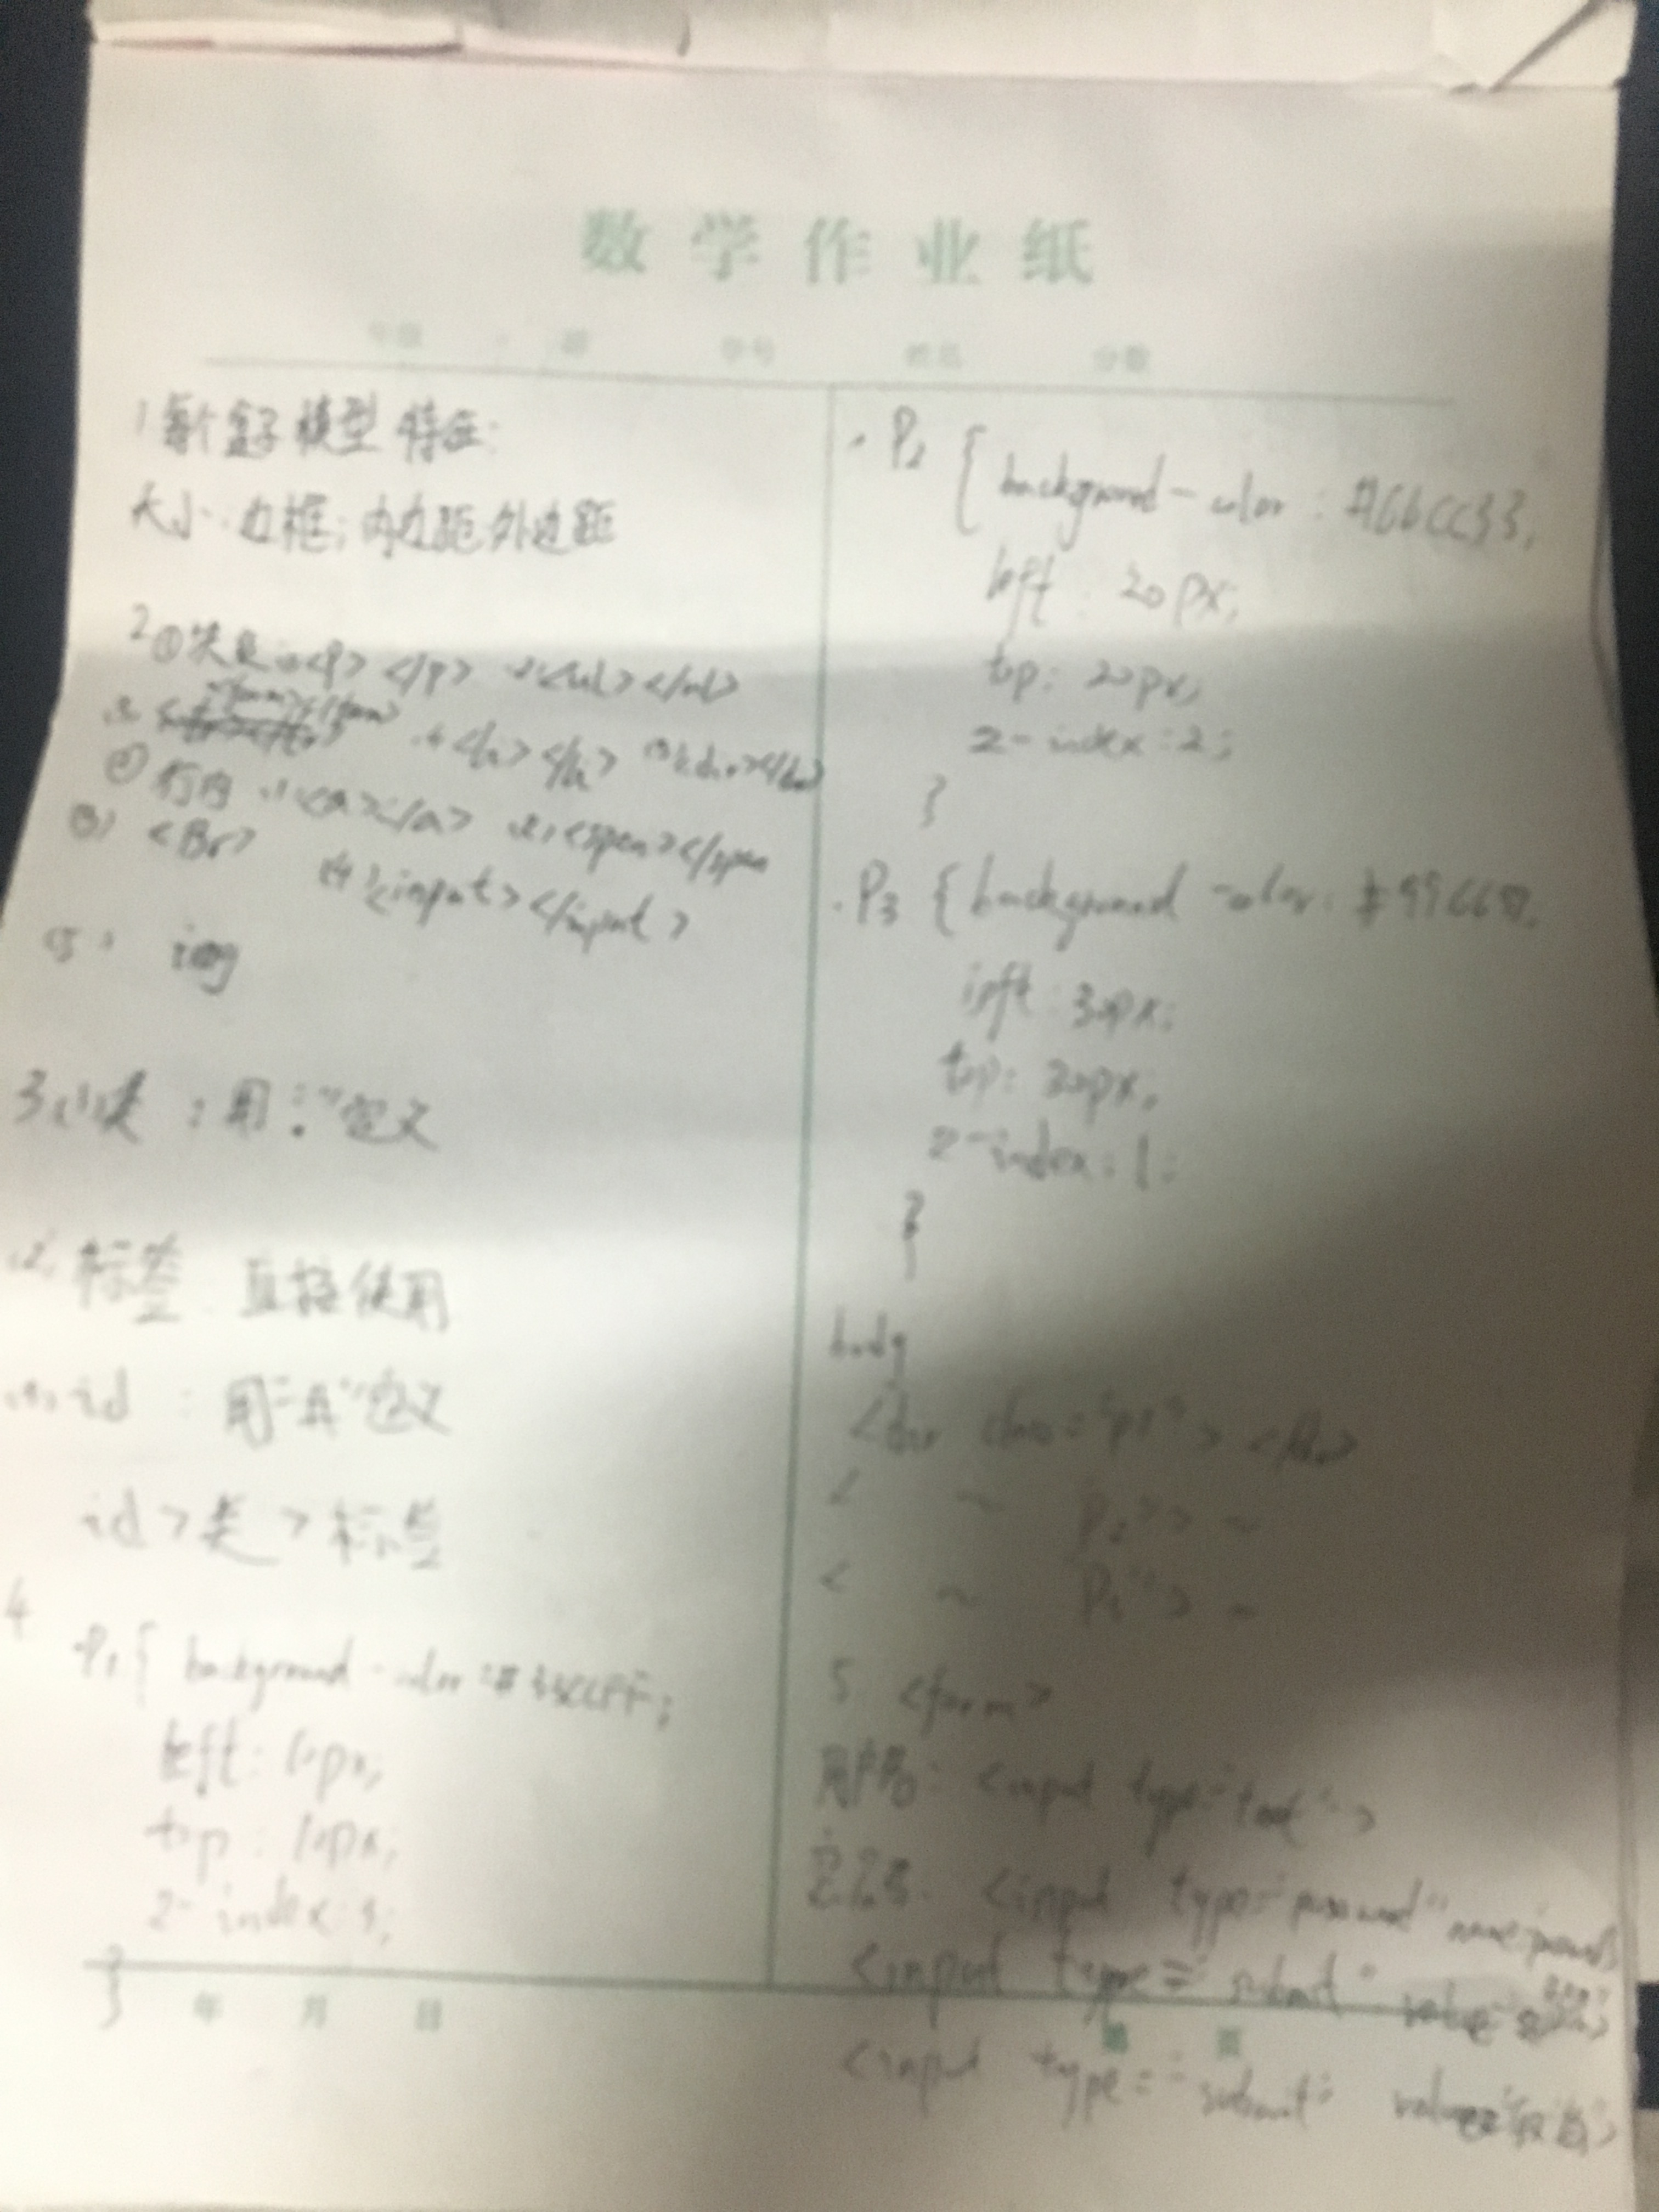 数学作业纸
年级 班 学号 姓名 分数
1 每个盒子模型特征:
大小.边框;内边距.外边距
2 ① 块级 <p> </p> <ul></ul>
<form></form> <h></h> <div></div>
② 行内 <a></a> <span></span
<Br>
(4) <input></input>
(5) img
3 (1)类 : 用"."定义
(2) 标签 直接使用
id : 用"#"定义
id > 类 > 标签
4
.P1 { background-color:#33CCFF;
left: 10px;
top: 10px;
z-index:3;
}
.P2 { background-color: #66CC33;
left: 20px;
top: 20px;
z-index:2;
}
.P3 { background-color:
left: 30px;
top: 30px;
z-index:1;
}
body
<div class="p1"> </div>
< ~ P2"> ~
< ~
5 <form>
用户名: <input type="text">
<input type="password"
<input type="submit" value=
<input type="submit" value="取消">
年 月 日
第 页